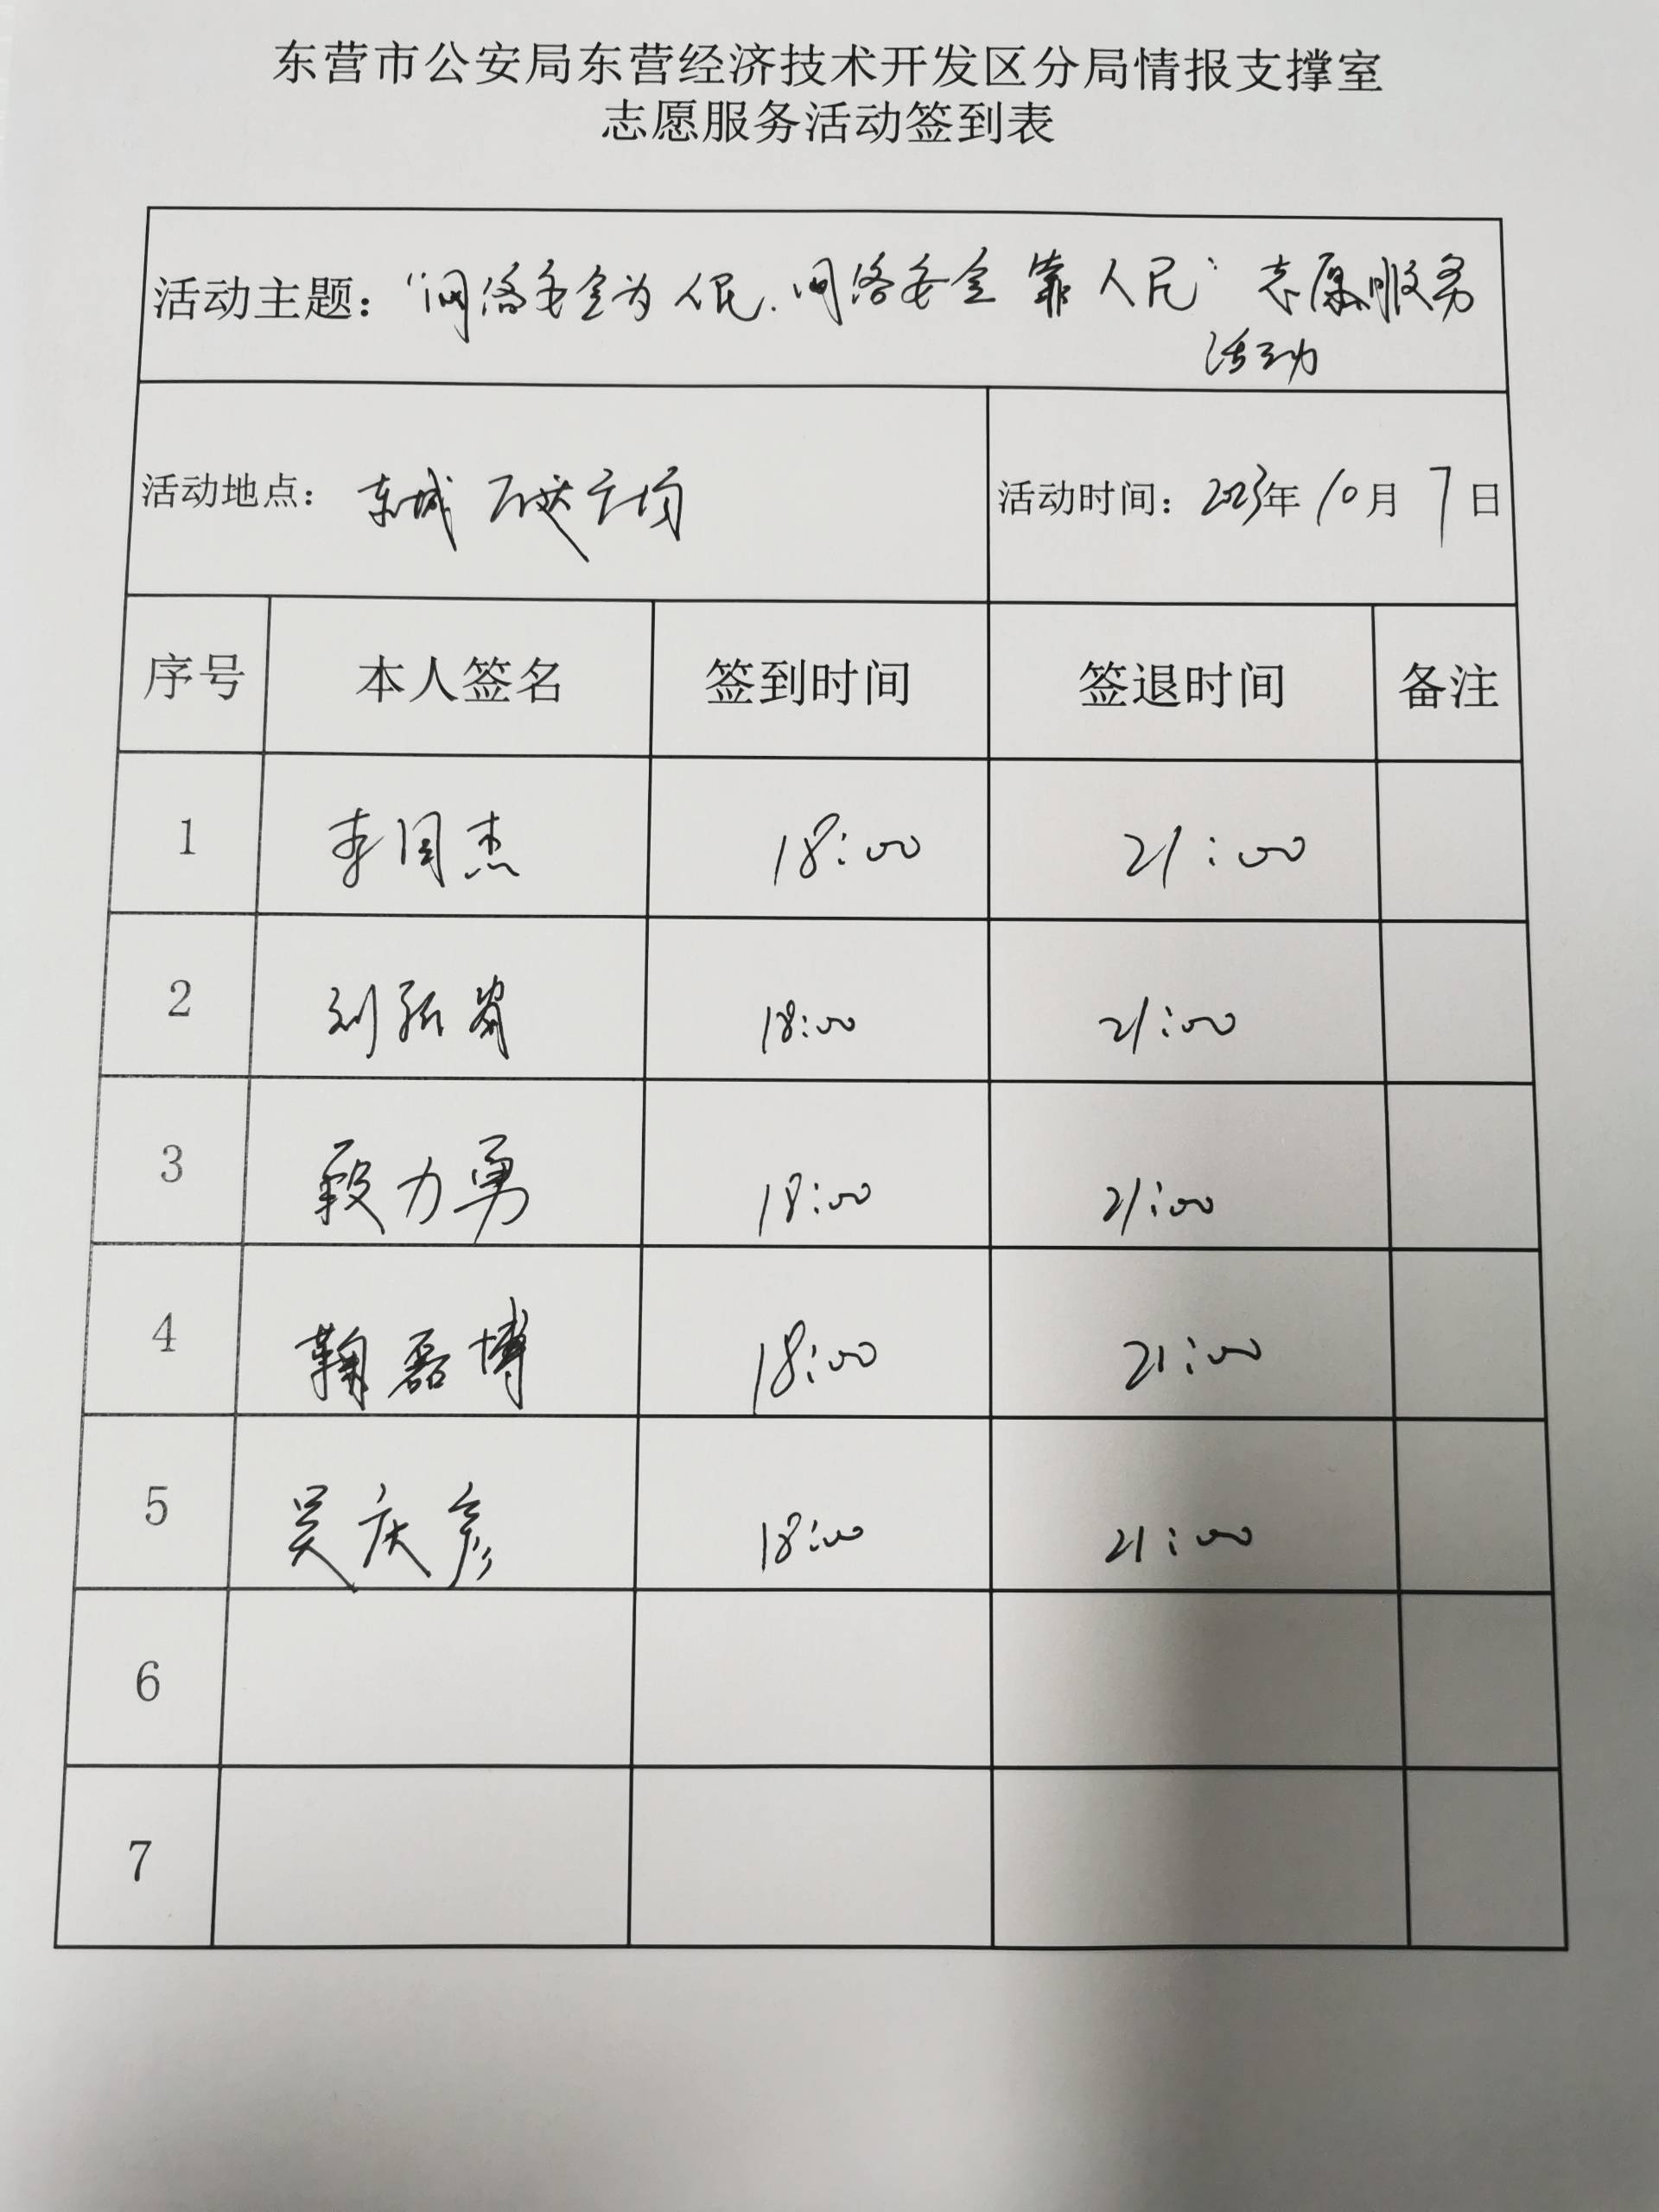 东营市公安局东营经济技术开发区分局情报支撑室
志愿服务活动签到表
活动主题：“网络安全为人民、网络安全靠人民”志愿服务
活动
活动地点：东城万达广场 活动时间：2023年10月7日
序号 本人签名 签到时间 签退时间 备注
1 李国杰 18:00 21:00
2 刘 18:00 21:00
3 段力勇 18:00 21:00
4 鞠磊博 18:00 21:00
5 吴庆彦 18:00 21:00
6
7